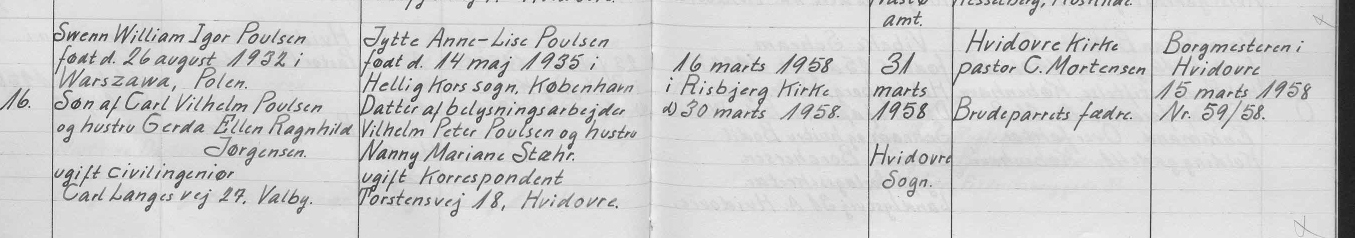 amt.
16.
Swenn William Igor Poulsen
født d. 26 august 1932 i
Warszawa, Polen.
Søn af Carl Vilhelm Poulsen
og hustru Gerda Ellen Ragnhild
Jørgensen.
ugift civilingeniør
Carl Langes vej 27, Valby.
Jytte Anne-Lise Poulsen
født d. 14 maj 1935 i
Hellig Kors sogn, København
Datter af belysningsarbejder
Vilhelm Peter Poulsen og hustru
Nanny Mariane Stæhr.
ugift Korrespondent
Torstensvej 18, Hvidovre.
16 marts 1958
i Risbjerg Kirke
d) 30 marts 1958.
31
marts
1958
Hvidovre
Sogn.
Hvidovre Kirke
pastor C. Mortensen
Brudeparrets fædre.
Borgmesteren i
Hvidovre
15 marts 1958
Nr. 59/58.